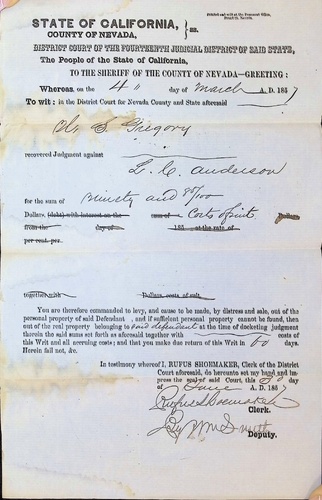 STATE OF CALIFORNIA,
COUNTY OF NEVADA, } ss.
DISTRICT COURT OF THE FOURTEENTH JUDICIAL DISTRICT OF SAID STATE,
The People of the State of California,
TO THE SHERIFF OF THE COUNTY OF NEVADA—GREETING:
Whereas, on the 4" day of March A. D. 1857
To wit: in the District Court for Nevada County and State aforesaid
S Gregory
recovered Judgment against
L. C. Anderson
for the sum of Ninety and 85/100
Dollars, (debt) with interest on the sum of Costs of suit Dollars
from the day of 185 at the rate of
per cent. per.
together with Dollars, costs of suit.
You are therefore commanded to levy, and cause to be made, by distress and sale, out of the
personal property of said Defendant , and if sufficient personal property cannot be found, then
out of the real property belonging to said defendant at the time of docketing judgment
therein the said sums set forth as aforesaid together with costs of
this Writ and all accruing costs; and that you make due return of this Writ in 60 days.
Herein fail not, &c.
In testimony whereof I, RUFUS SHOEMAKER, Clerk of the District
Court aforesaid, do hereunto set my hand and im-
press the seal of said Court, this day
of June A. D. 1857
Rufus Shoemaker
Clerk.
By Wm Smith
Deputy.